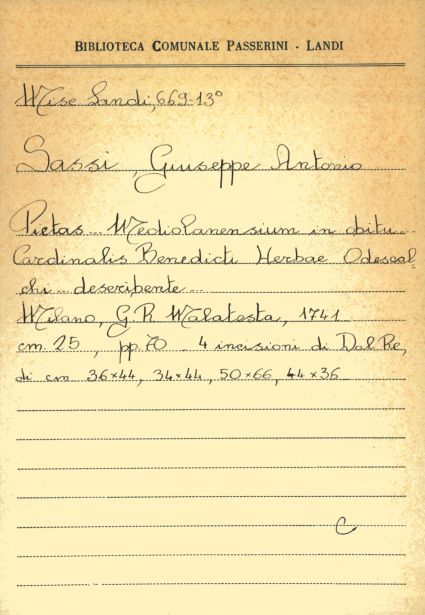 BIBLIOTECA COMUNALE PASSERINI - LANDI
Misc Landi, 669-13°
Sassi, Giuseppe Antonio
Pietas Mediolanensium in obitu
Cardinalis Benedicti Herbae Odescal-
chi describente
Milano, G. R. Malatesta, 1741
cm. 25, pp. 70 4 incisioni di Dal Re,
di cm 36x44, 34x44, 50x66, 44x36
C